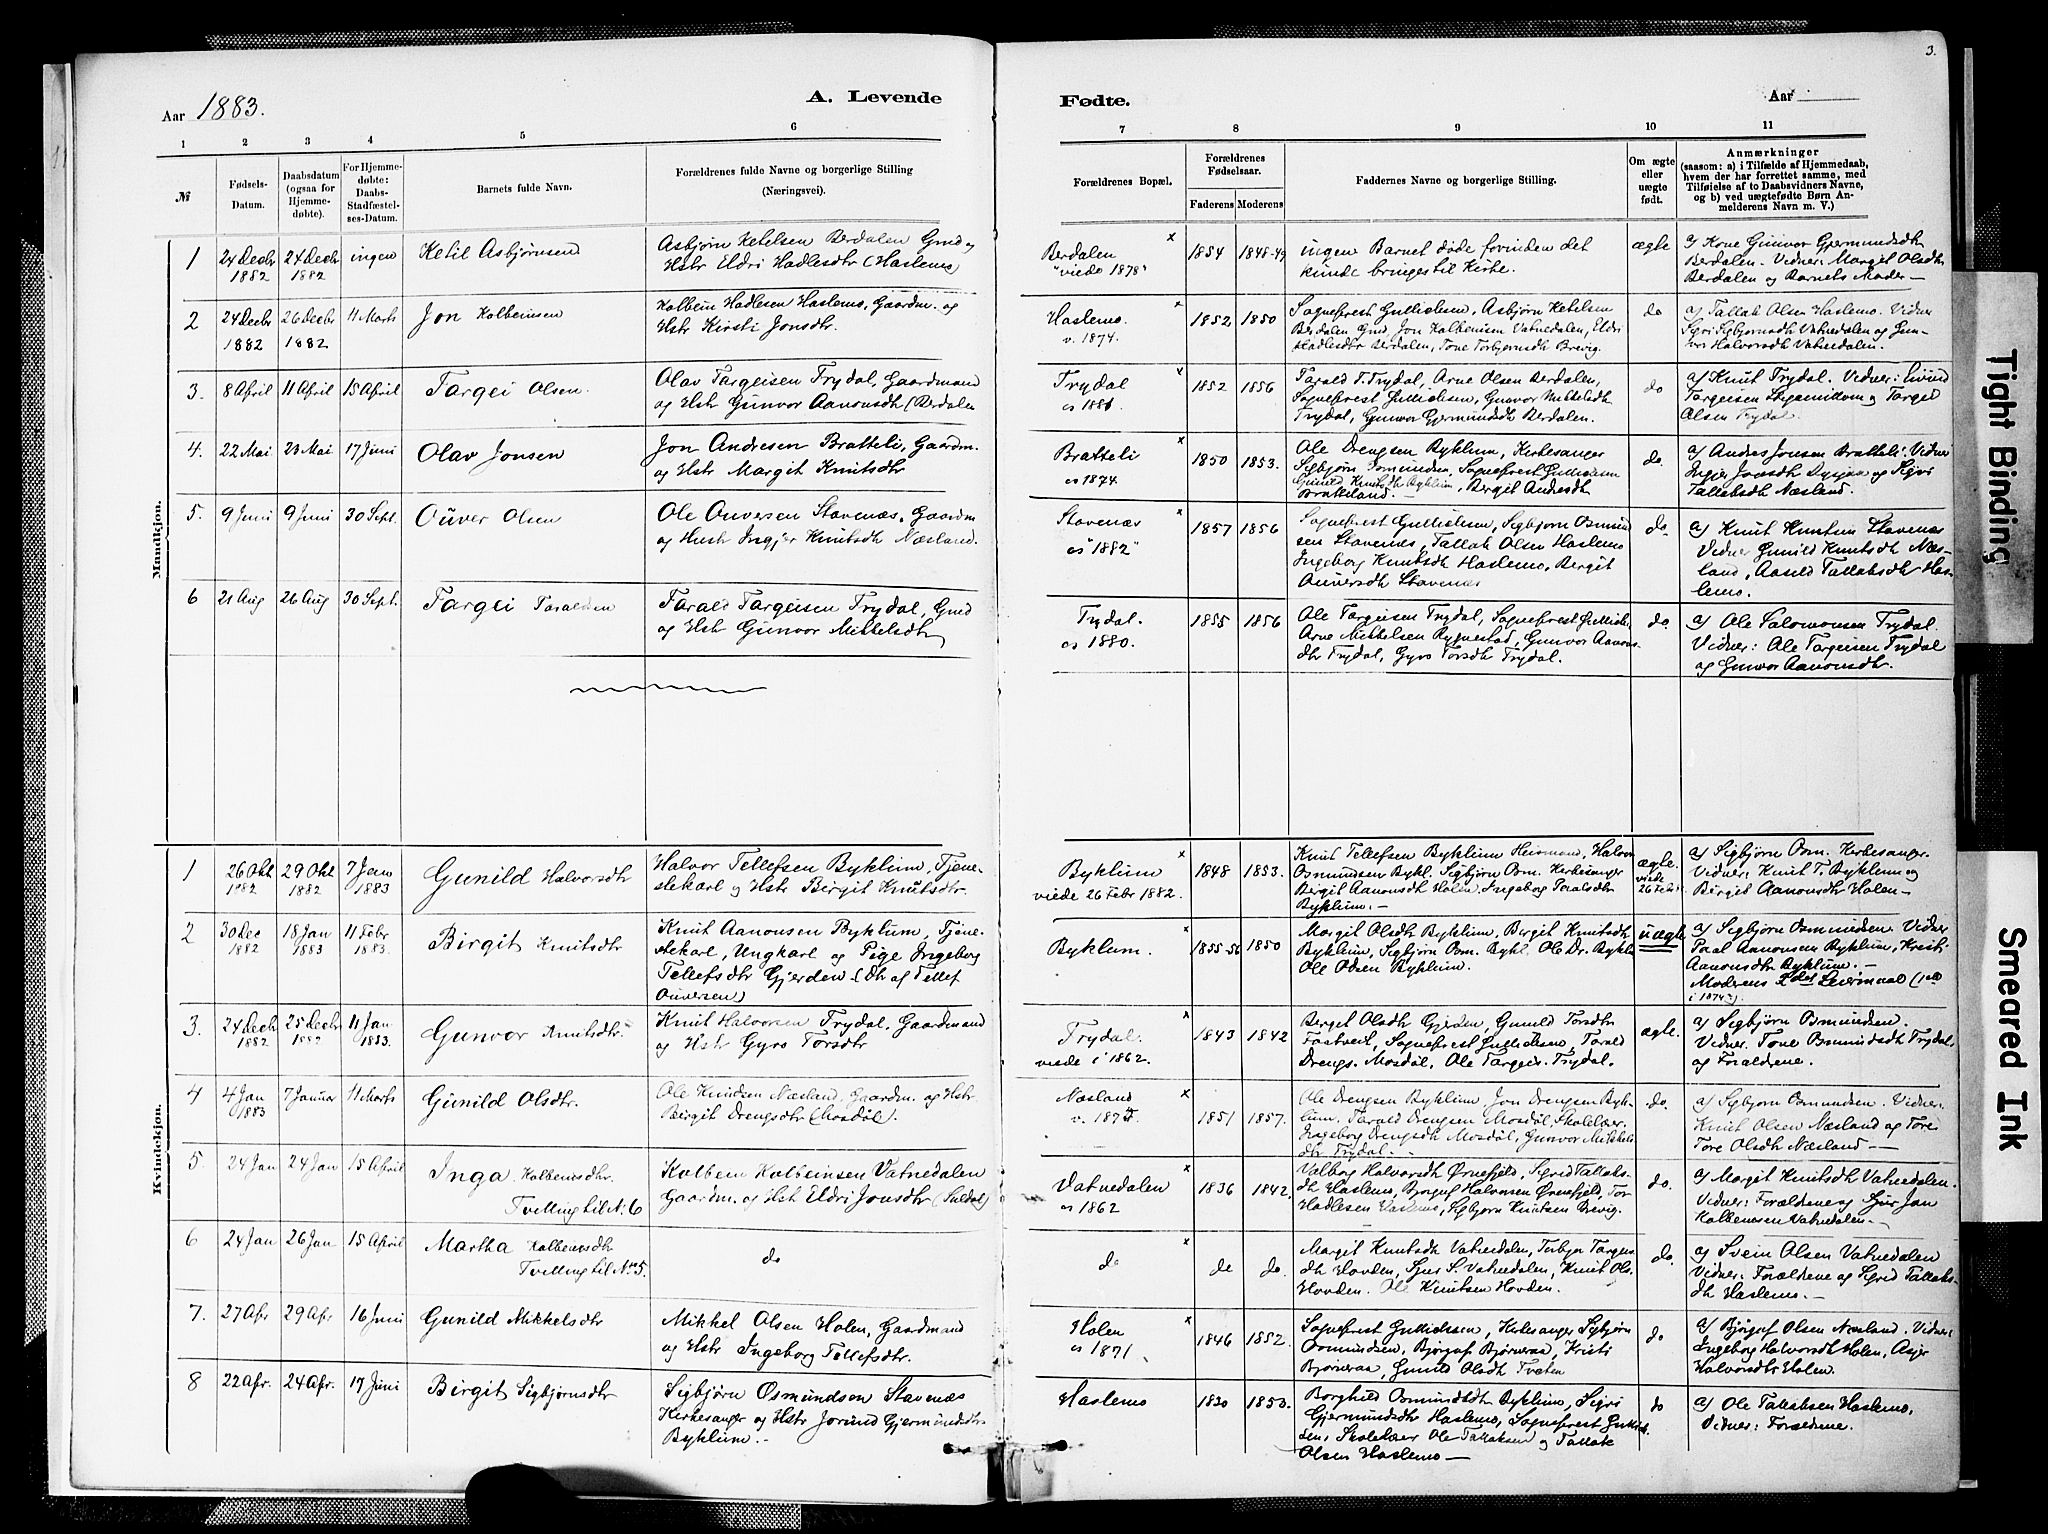 3.
Aar 1883.
A. Levende
Fødte.
Aar
1 2 3 4 5 6 7 8 9 10 11
№
Fødsels-
Datum.
Daabsdatum
(ogsaa for
Hjemme-
døbte).
For Hjemme-
døbte:
Daabs-
Stadfæstel-
ses-Datum.
Barnets fulde Navn.
Forældrenes fulde Navne og borgerlige Stilling
(Næringsvei).
Forældrenes Bopæl.
Forældrenes
Fødselsaar.
Faderens Moderens
Faddernes Navne og borgerlige Stilling.
Om ægte
eller
uægte
født.
Anmærkninger
(saasom: a) i Tilfælde af Hjemmedaab,
hvem der har forrettet samme, med
Tilføielse af to Daabsvidners Navne,
og b) ved uægtefødte Børn An-
melderens Navn m. V.)
Mandkjøn.
1
24 Decbr
1882
24 Decbr
1882
ingen
Ketil Asbjørnsen
Asbjørn Ketelsen Berdalen Gmd og
Hstr Eldri Hadlesdtr (Haslemo)
Berdalen
"viede 1878"
1854
1848-49
ingen Barnet døde forinden det
kunde bringes til Kirke.
ægte
a) Kone Gunvor Gjermundsdtr
Berdalen. Vidner: Margit Olsdtr
Berdalen og Barnets Moder —
2
24 Decbr
1882
26 Decbr
1882
11 Marts
Jon Kolbeinsen
Kolbein Hadlesen Haslemo, Gaardm. og
Hstr Kirsti Jonsdtr.
Haslemo.
v. 1874.
1852
1850
Sogneprest Gulliksen, Asbjørn Ketelsen
Berdalen Gmd, Jon Kolbeinsen Vatnedalen, Eldri
Hadlesdtr Berdalen, Tone Torbjørnsdtr Brevig.
do
a) Tallak Olsen Haslemo. Vidner
Sigri Sigbjørnsdtr Vatnedalen og Gun-
vor Halvorsdtr Vatnedalen.
3.
8 April
11 April
15 April
Targei Olsen.
Olav Targeisen Trydal, Gaardmand
og Hstr Gunvor Aanonsdtr (Berdalen
Trydal
es 1881.
1852
1856
Tarald T. Trydal, Arne Olsen Berdalen,
Sogneprest Gulliksen, Gunvor Mikkelsdtr
Trydal, Gunvor Gjermundsdtr Berdalen.
do
a) Knut Trydal. Vidner: Eivind
Targeisen og Targei
Olsen Trydal
4.
22 Mai
23 Mai
17 Juni
Olav Jonsen
Jon Andresen Bratteli, Gaardm.
og Hstr Margit Knutsdtr
Bratteli
es 1874.
1850
1853.
Ole Drengsen Byklum, Kirkesanger
Sigbjørn Osmundsen, Sogneprest Gulliksen
Gunild Knutsdtr Byklum, Bergit Andresdtr
Bratteland. —
do.
a) Andres Jonsen Bratteli. Vidner
Ingjer Jonsdtr og Sigri
Tallaksdtr Næsland.
5.
9 Juni
9 Juni
30 Sept.
Ouver Olsen
Ole Ouversen Stavenæs, Gaardm
og Hustr Ingjer Knutsdtr Næsland.
Stavenæs
es "1882"
1857
1856
Sogneprest Gulliksen, Sigbjørn Osmund
sen Stavenæs, Tallak Olsen Haslemo
Ingeborg Knutsdtr Haslemo, Bergit
Ouversdtr Stavenæs
do.
a) Knut Knutsen Stavenæs
Vidner Gunild Knutsdtr Næs-
land, Aasild Tallaksdtr Has-
lemo.
6
21 Aug
26 Aug
30 Sept.
Targei Taraldsen
Tarald Targeisen Trydal, Gmd
og Hstr Gunvor Mikkelsdtr
Trydal.
es 1880.
1855
1856
Ole Targeisen Trydal, Sogneprest Gulliks.
Arne Mikkelsen Rygnestad, Gunvor Aanons-
dtr Trydal, Gyro Torsdtr Trydal.
do.
a) Ole Salomonsen Trydal
Vidner: Ole Targeisen Trydal
og Gunvor Aanonsdtr.
Kvindekjøn.
1
26 Okt
1882
29 Okt
1882
7 Jan
1883
Gunild Halvorsdtr
Halvor Tellefsen Byklum, Tjene-
stekarl og Hstr Birgit Knutsdtr.
Byklum
viede 26 Febr 1882.
1848
1853.
Knut Tellefsen Byklum Husmand, Halvor
Osmundsen Bykl. Sigbjørn Osm. Kirkesanger
Birgit Aanonsdtr Holen, Ingeborg Toralsdtr
Byklum. —
ægte.
viede
26 Febr
a) Sigbjørn Osm. Kirkesanger.
Vidner: Knut T. Byklum og
Birgit Aanonsdtr Holen —
2
30 Dec
1882
18 Jan
1883
11 Febr
1883.
Birgit Knutsdtr
Knut Aanonsen Byklum, Tjene-
stekarl, Ungkarl og Pige Ingeborg
Tellefsdtr Gjerden (Dtr af Tellef
Ouversen)
Byklum.
1855-56
1850
Margit Olsdtr Byklum, Bergit Knutsdtr
Byklum, Sigbjørn Osm. Bykl. Ole Dr. Bykle
Ole Olsen Byklum.
uægte
a) Sigbjørn Osmundsen. Vidner
Paal Aanonsen Byklum, Kristi
Aanonsdtr Byklum. —
Moderens 2det Leiermaal (1ste
i 1874).
3.
24 Decb
1882
25 Decbr
1882
11 Jan
1883.
Gunvor Knutsdtr.
Knut Halvorsen Trydal, Gaardmand
og Hstr Gyro Torsdtr
Trydal.
viede i 1862.
1843
1842
Berget Olsdtr Gjerden, Gunild Torsdtr
Sogneprest Gulliksen, Tarald
Drengs. Mosdøl, Ole Targeis. Trydal.
ægte.
a) Sigbjørn Osmundsen.
Vidner: Tone Osmundsdtr Trydal
og Forældrene.
4
4 Jan
1883
7 Januar
11 Marts
Gunild Olsdtr.
Ole Knudsen Næsland, Gaardm. og Hstr
Birgit Drengsdtr (Mosdøl).
Næsland
v. 1877.
1851
1857.
Ole Drengsen Byklum, Jon Drengsen Byk-
lum. Tarald Drengsen Mosdøl, Skolelær.
Ingeborg Drengsdtr Mosdøl, Gunvor Mikkels
dtr Trydal. —
do.
a) Sigbjørn Osmundsen. Vidner:
Knut Olsen Næsland og Tore
Tore Olsdtr Næsland —
5.
24 Jan
24 Jan
15 April
Inga Kolbeinsdtr
Tvilling til N. 6
Kolbein Kolbeinsen Vatnedalen
Gaardm. og Hstr Eldri Jonsdtr (Suldal)
Vatnedalen
es 1862
1836
1842.
Valborg Halvorsdtr Ørnefjeld, Sigrid Tallaks-
dtr Haslemo, Bjørguf Halvorsen Ørnefjeld, Tor
Hadlesen Haslemo, Sigbjørn Knutsen Brevig.
do.
a) Margit Knutsdtr Vatnedalen.
Vidner: Forældrene og Sjur Jon
Kolbeinsen Vatnedalen. —
6
24 Jan
26 Jan
15 April
Martha Kolbeinsdtr
Tvilling til No 5.
do
do
do
do.
Margit Knutsdtr Vatnedalen, Torbjør Targeis
dtr Hovden, Sjur S. Vatnedalen, Knut Ols.
Hovden. Ole Knutsen Hovden.
do.
a) Svein Olsen Vatnedalen
Vidner: Forældrene og Sigrid Tallaks-
dtr Haslemo. —
7.
27 Apr
29 Apr
16 Juni
Gunild Mikkelsdtr
Mikkel Olsen Holen, Gaardmand
og Hstr Ingeborg Tellefsdtr.
Holen
es 1871.
1846
1852.
Sogneprest Gulliksen, Kirkesanger Sigbjørn
Osmundsen, Bjørguf Bjørneraa, Kristi
Bjørneraa, Gunild Olsdtr Tveten
do
a) Bjørguf Olsen Næsland. Vidner:
Ingeborg Halvorsdtr Holen, Asjer
Halvorsdtr Holen.
8
22 Apr.
24 Apr.
17 Juni
Birgit Sigbjørnsdtr
Sigbjørn Osmundsen Stavenæs
Kirkesanger og Hstr Jorund Gjermundsdtr
Byklum. —
Haslemo
1830
1853.
Borghild Osmundsdtr Byklum, Sigri
Gjermundsdtr Haslemo, Sogneprest Gullik-
sen, Skolelærer Ole Tallaksen og Tallak
Olsen Haslemo —
do
a) Ole Tallaksen Haslemo,
Vidner: Forældrene.
Tight Binding
Smeared Ink